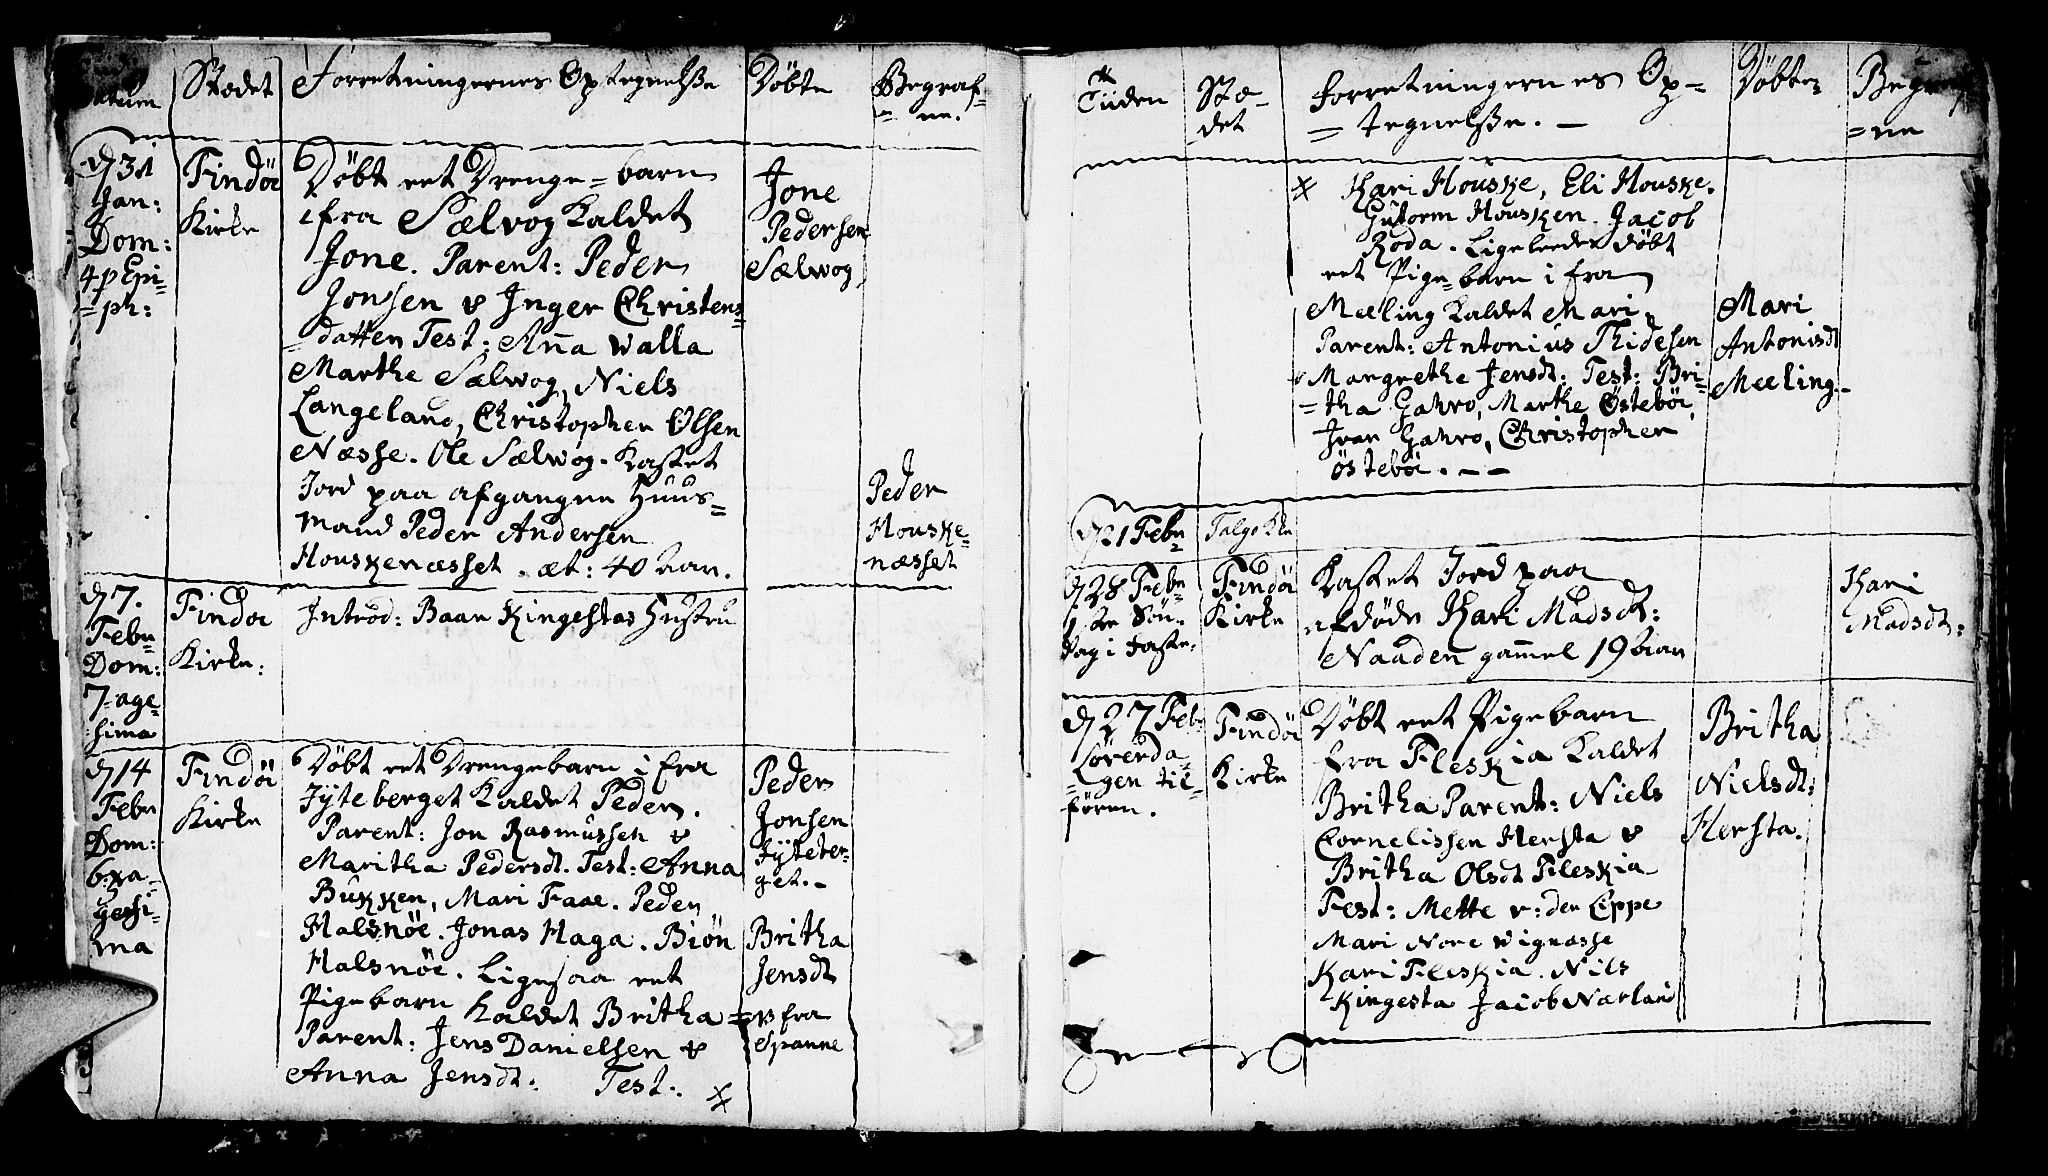 Datum
Stædet
Forretningernes Optegnelsse
Døbte
Begraf-
= ne.
d 31
Jan:
Dom:
4 p Epi-
= ph:
Findöe
Kirke
Døbt eet Drenge-barn
ifra Sælvog Kaldet
Jone. Parent: Peder
Jonsen & Inger Christens-
= datter Test: Anna Walla
Marthe Sælwog, Niels
Langeland, Christopher Olsen
Næsse. Ole Sælwog. Kastet
Jord paa afgangne Huus-
mand Peder Andersen
Houskenæsset . æt: 40 Aar.
Jone
Pedersen
Sælwog
Peder
Houske-
næsset
d 7.
Febr
Dom:
7-age-
sima
Findöe
Kirke:
Introd: Baar Kingestas Hustru
d 14
Febr
Dom:
6xa-
gesi-
ma
Findöe
Kirke
Døbt eet Drengebarn i fra
Jÿteberget Kaldet Peder.
Parent: Jon Rasmussen &
Maritha Pedersdt. Test: Anna
Bukken, Mari Faae. Peder
Halsnöe. Jonas Haga. Biön
Halsnöe. Ligesaa eet
Pigebarn Kaldet Britha =
Parent: Jens Danielsen &
Anna Jensdt: Test:
Peder
Jonsen
Jÿteber-
get. -
Britha
Jensdt
fra
Spanne
Tiiden
Stæ-
det
Forretningernes Op-
= tegnelsse. -
Døbte
Begraf
= ne
Kari Houske, Eli Houske.
Gutorm Housken. Jacob
Roda. Ligeleedes døbt
eet Pige-barn i fra
Meeling Kaldet Mari,
Parent: Antonius Thidesen
& Margrethe Jensdt: Test: Bri-
= tha Gahro, Marthe Östeböe,
Ivar Gahro, Christopher
Östeböe. - -
Mari
Antonisdt
Meeling -
d 21 Febr
Talgö Kke
d 28 Febr
1ste Sön-
dag i Faste.
Findöe
Kirke
Kastet Jord paa
afdöde Kari Madsdt:
Naaden gammel 19 Aar
Kari
Madsdt:
d 27 Feb
Löverda-
= gen til-
fören.
Findöe
Kirke
Døbt eet Pigebarn
fra Fleskia Kaldet
Britha Parent: Niels
Cornelissen Hersta &
Britha Olsdt Fleskia
Test: Mette v: der Lippe
Mari Nore Wignæsse
Kari Fleskia. Nils
Kingesta Jacob Nærland
Britha
Nielsdt:
Hersta.